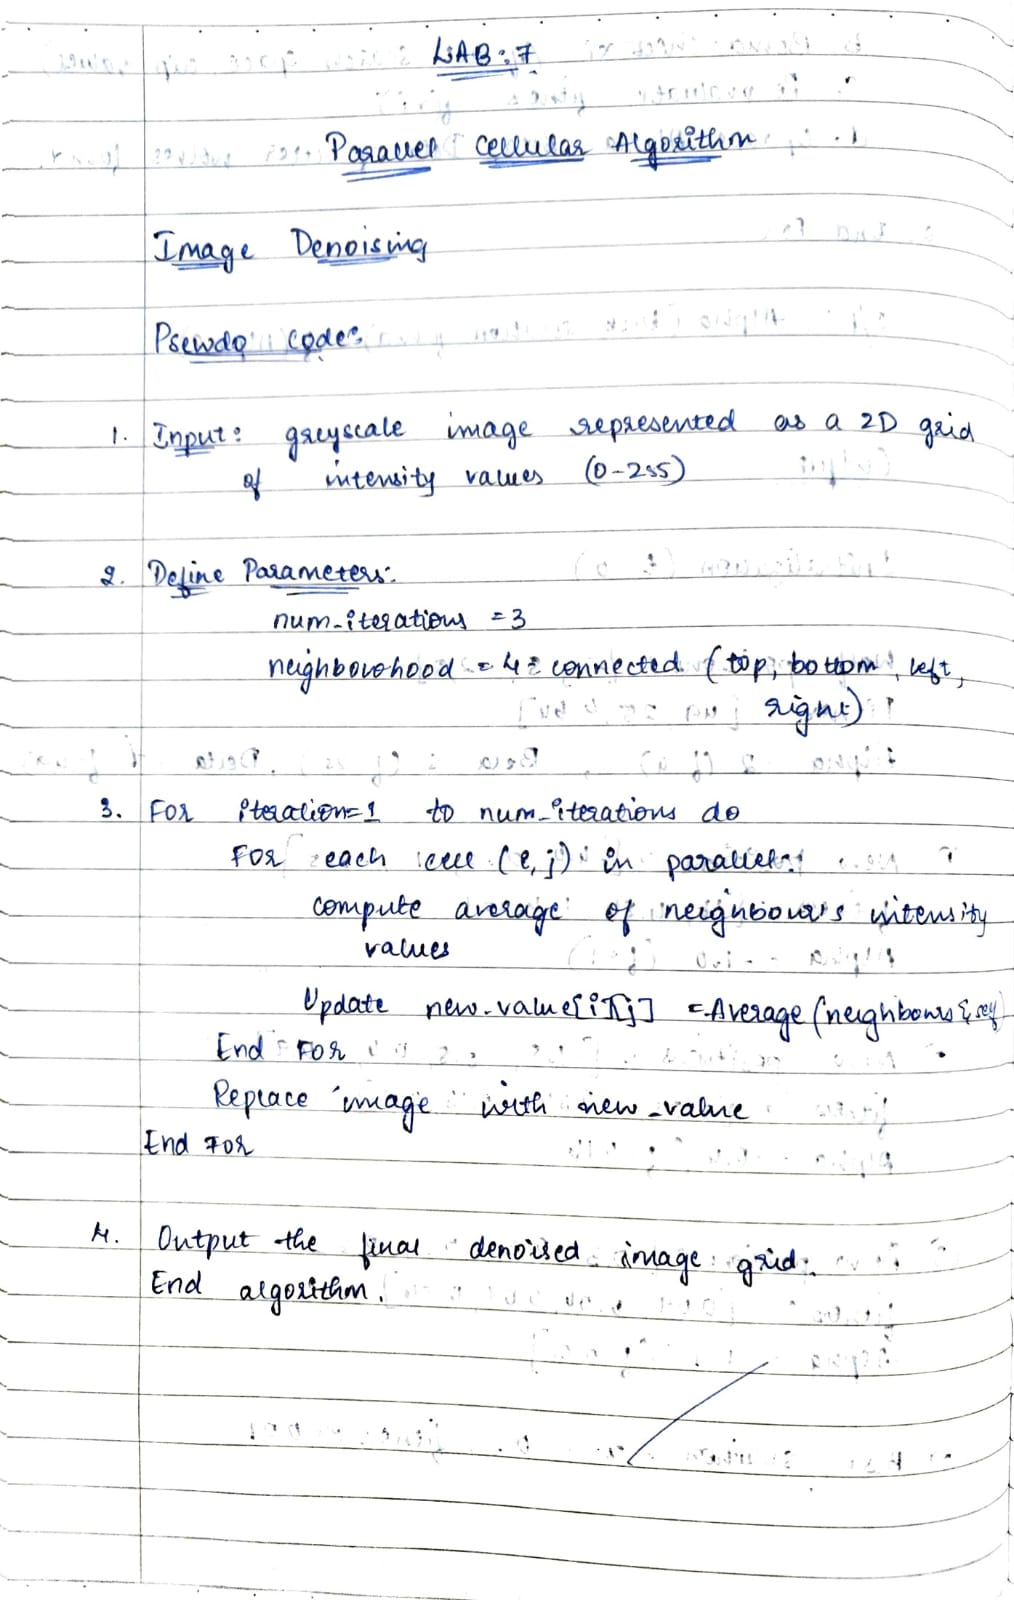 LAB: 7
Parallel Cellular Algorithm
Image Denoising
Pseudo code:
1. Input: greyscale image represented as a 2D grid
of intensity values (0-255)
2. Define Parameters:
num_iterations = 3
neighbourhood = 4-connected (top, bottom, left,
right)
3. For iteration=1 to num_iterations do
For each cell (i,j) in parallel:
compute average of neighbour's intensity
values
Update new_value[i][j] = Average (neighbours & self
End For
Replace image with new_value
End For
4. Output the final denoised image grid.
End algorithm.